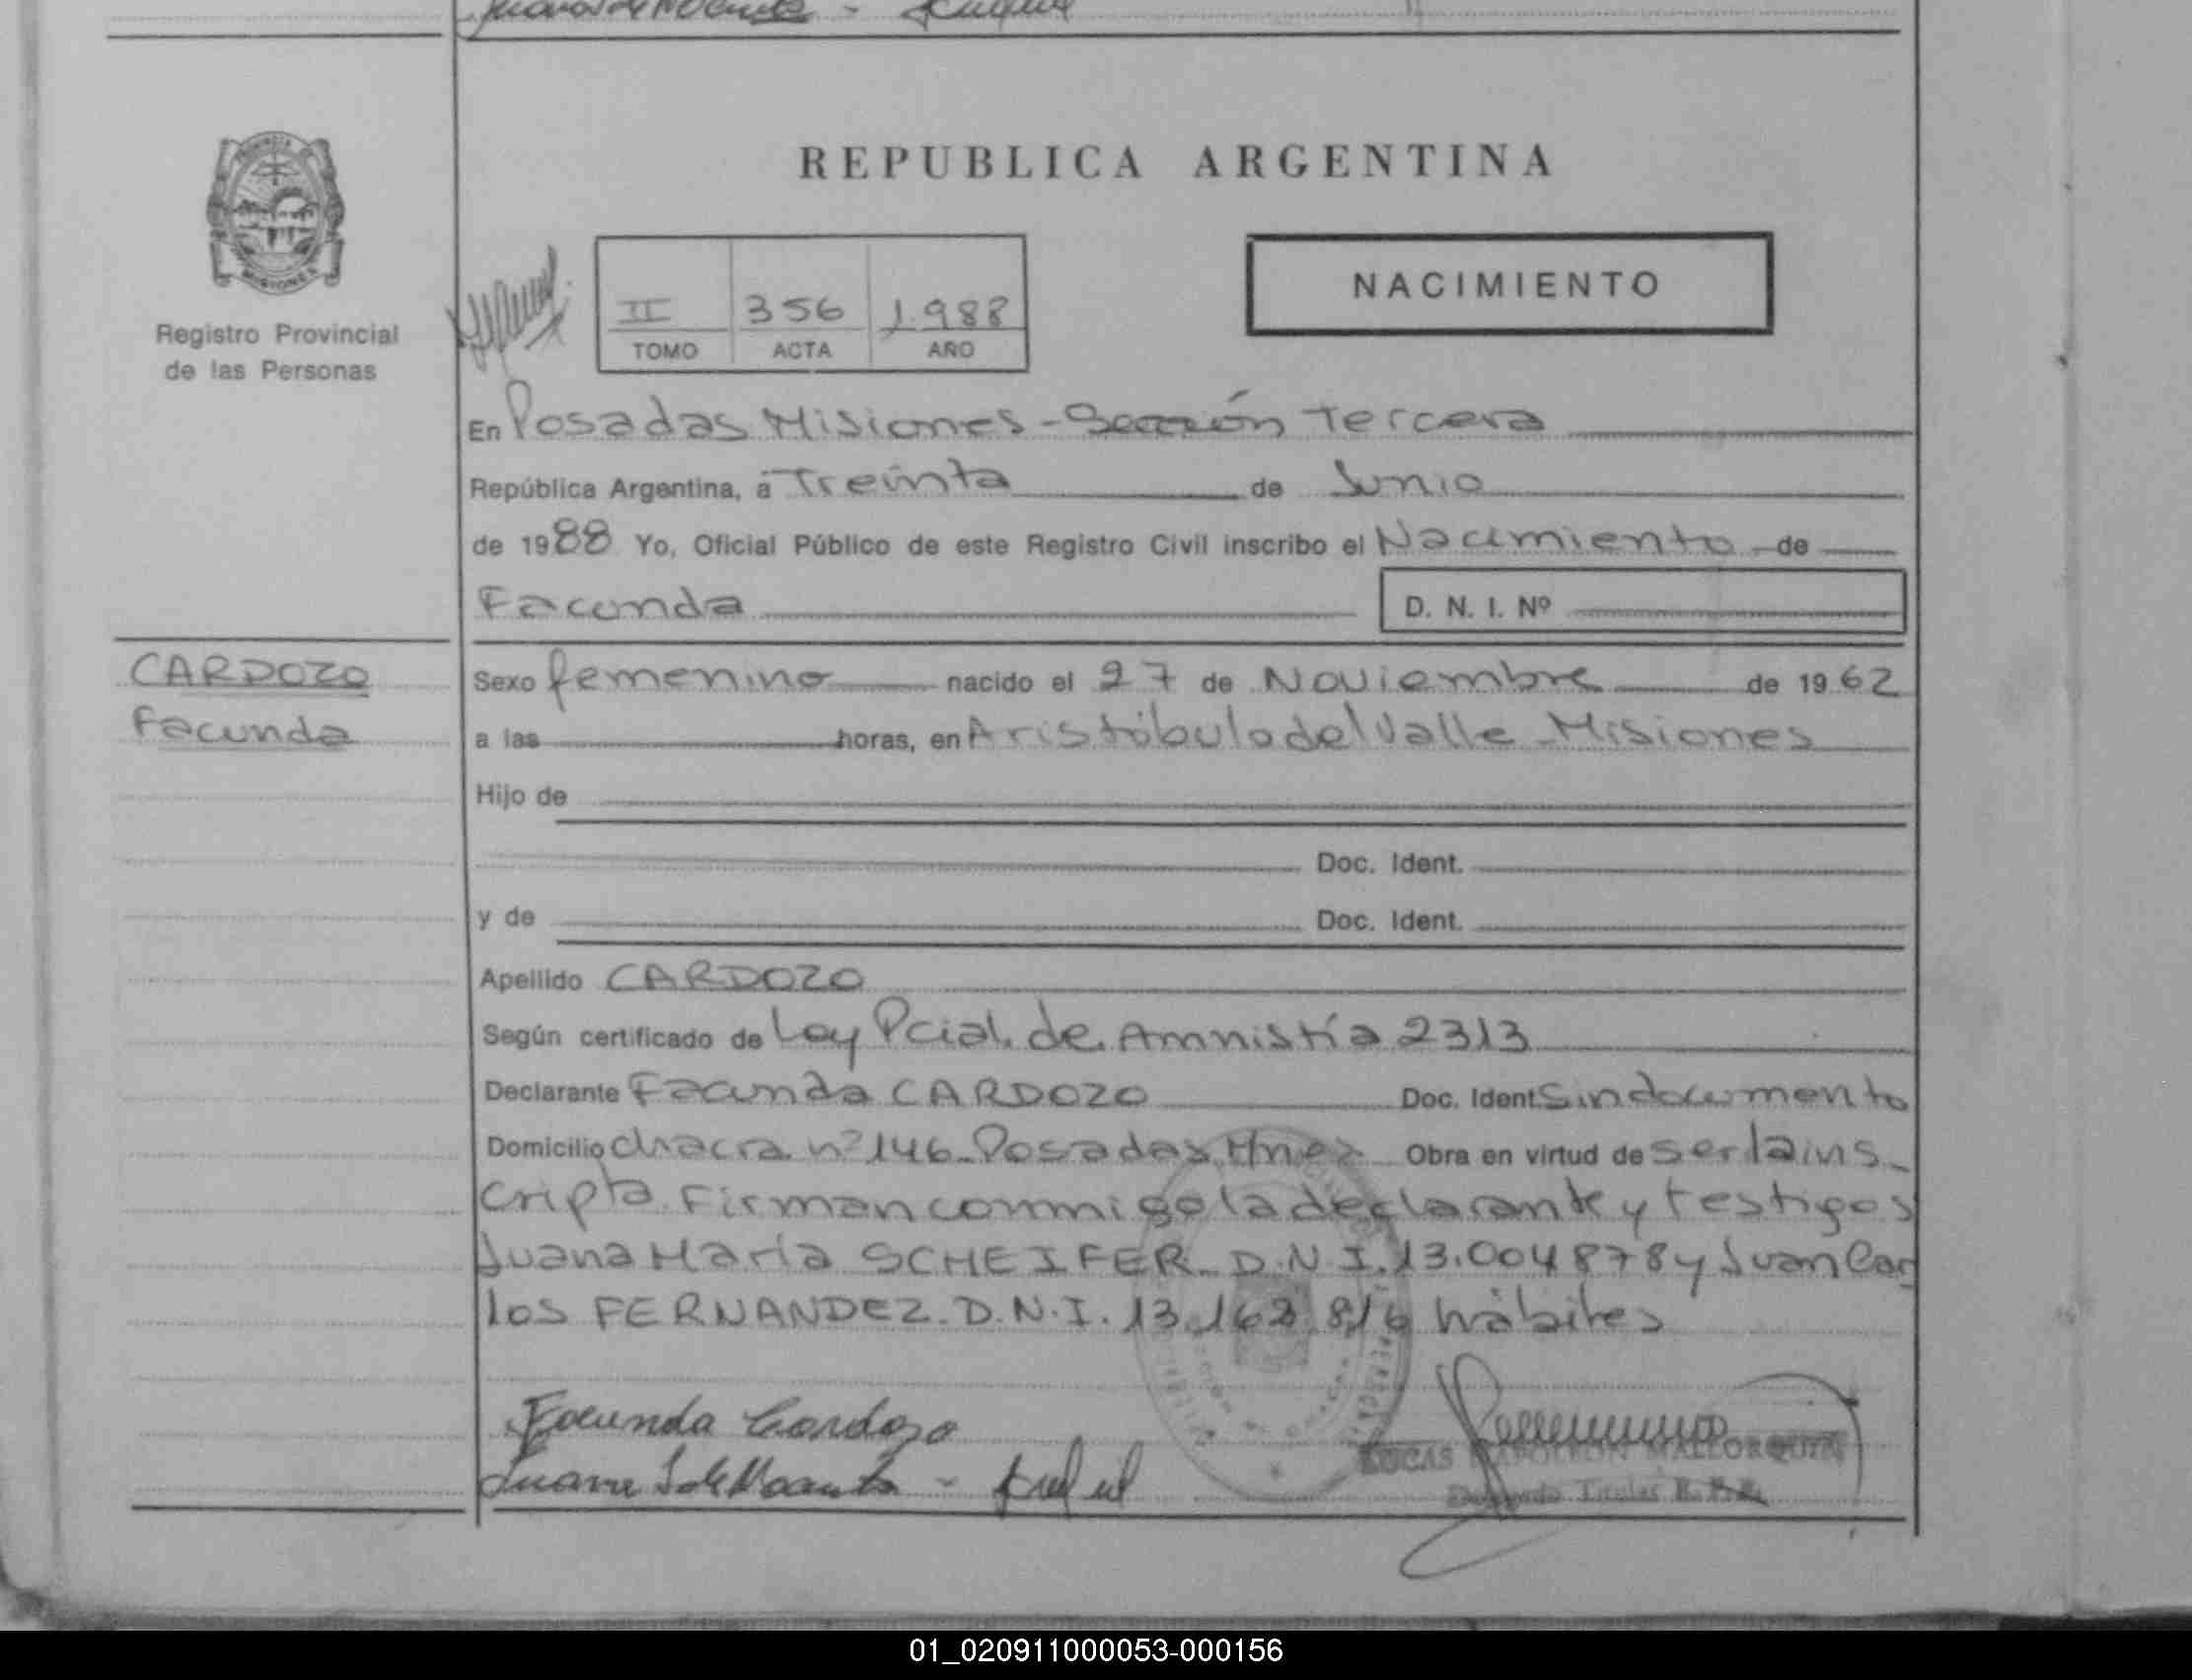 REPUBLICA ARGENTINA
PROVINCIA
MISIONES
Registro Provincial
de las Personas
NACIMIENTO
II 356 1.988
TOMO ACTA AÑO
En Posadas Misiones - Sección Tercera
República Argentina, a Treinta de Junio
de 1988 Yo, Oficial Público de este Registro Civil inscribo el Nacimiento de
Facunda D. N. I. Nº
CARDOZO
Facunda
Sexo femenino nacido el 27 de Noviembre de 1962
a las horas, en Aristóbulo del Valle - Misiones
Hijo de
Doc. Ident.
y de Doc. Ident.
Apellido CARDOZO
Según certificado de Ley Pcial. de Amnistía 2313
Declarante Facunda CARDOZO Doc. Ident Sin documento
Domicilio chacra nº 146 - Posadas Mnes Obra en virtud de ser la ins-
cripta. Firman conmigo la declarante y testigos
Juana María SCHEIFER - D.N.I. 13.004878 y Juan Car
los FERNANDEZ - D.N.I. 13.162.816 hábiles
Facunda Cardozo
LUCAS NAPOLEON MALLORQUIN
Delegado Titular R. P. P.
01_020911000053-000156